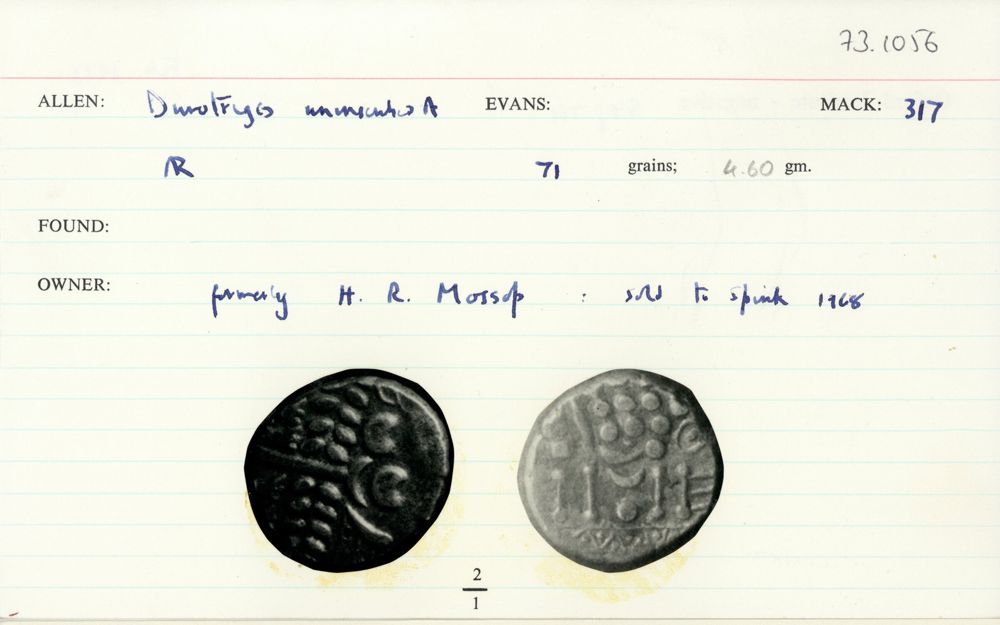 73.1056
ALLEN: Durotriges uninscribed A EVANS: MACK: 317
AR 71 grains; 4.60 gm.
FOUND:
OWNER: formerly H. R. Mossop : sold to Spink 1968
2
1